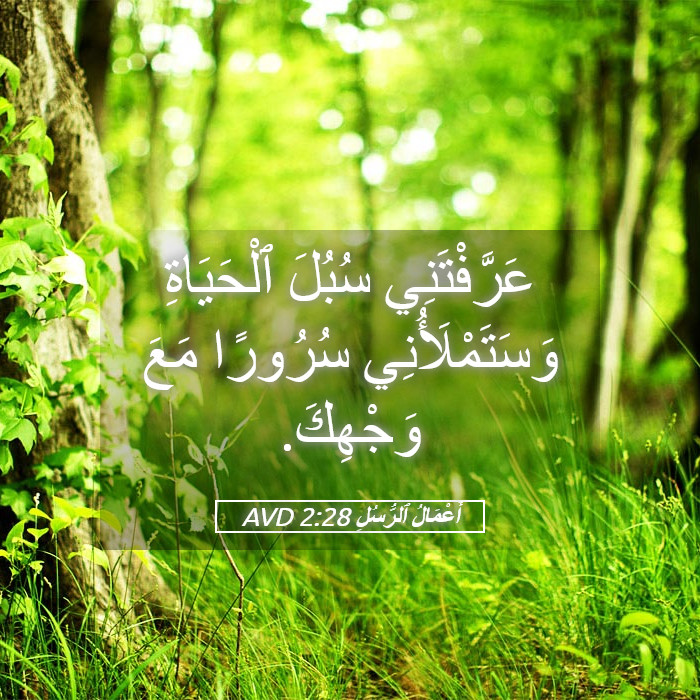 عَرَّفْتَنِي سُبُلَ ٱلْحَيَاةِ
وَسَتَمْلَأُنِي سُرُورًا مَعَ
وَجْهِكَ.
أَعْمَالُ ٱلرُّسُلِ 2:28 AVD